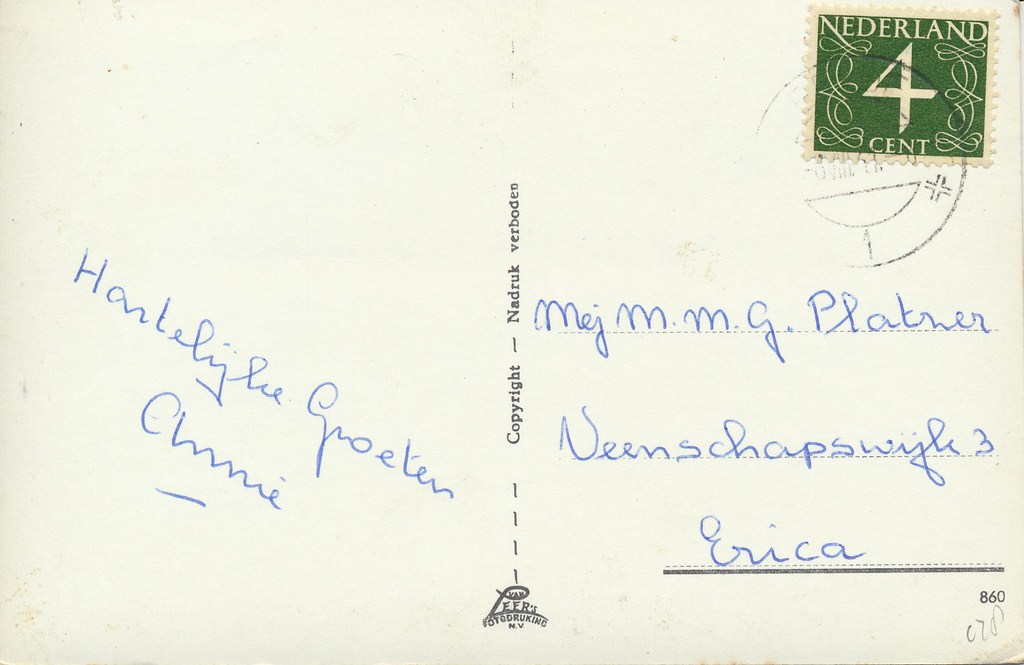 NEDERLAND
4
CENT
1
Hartelijke Groeten
Annie
Copyright — Nadruk verboden
Mej M. M. G. Platner
Veenschapswijk 3
Erica
VAN
LEER'S
FOTODRUKING
N.V.
860